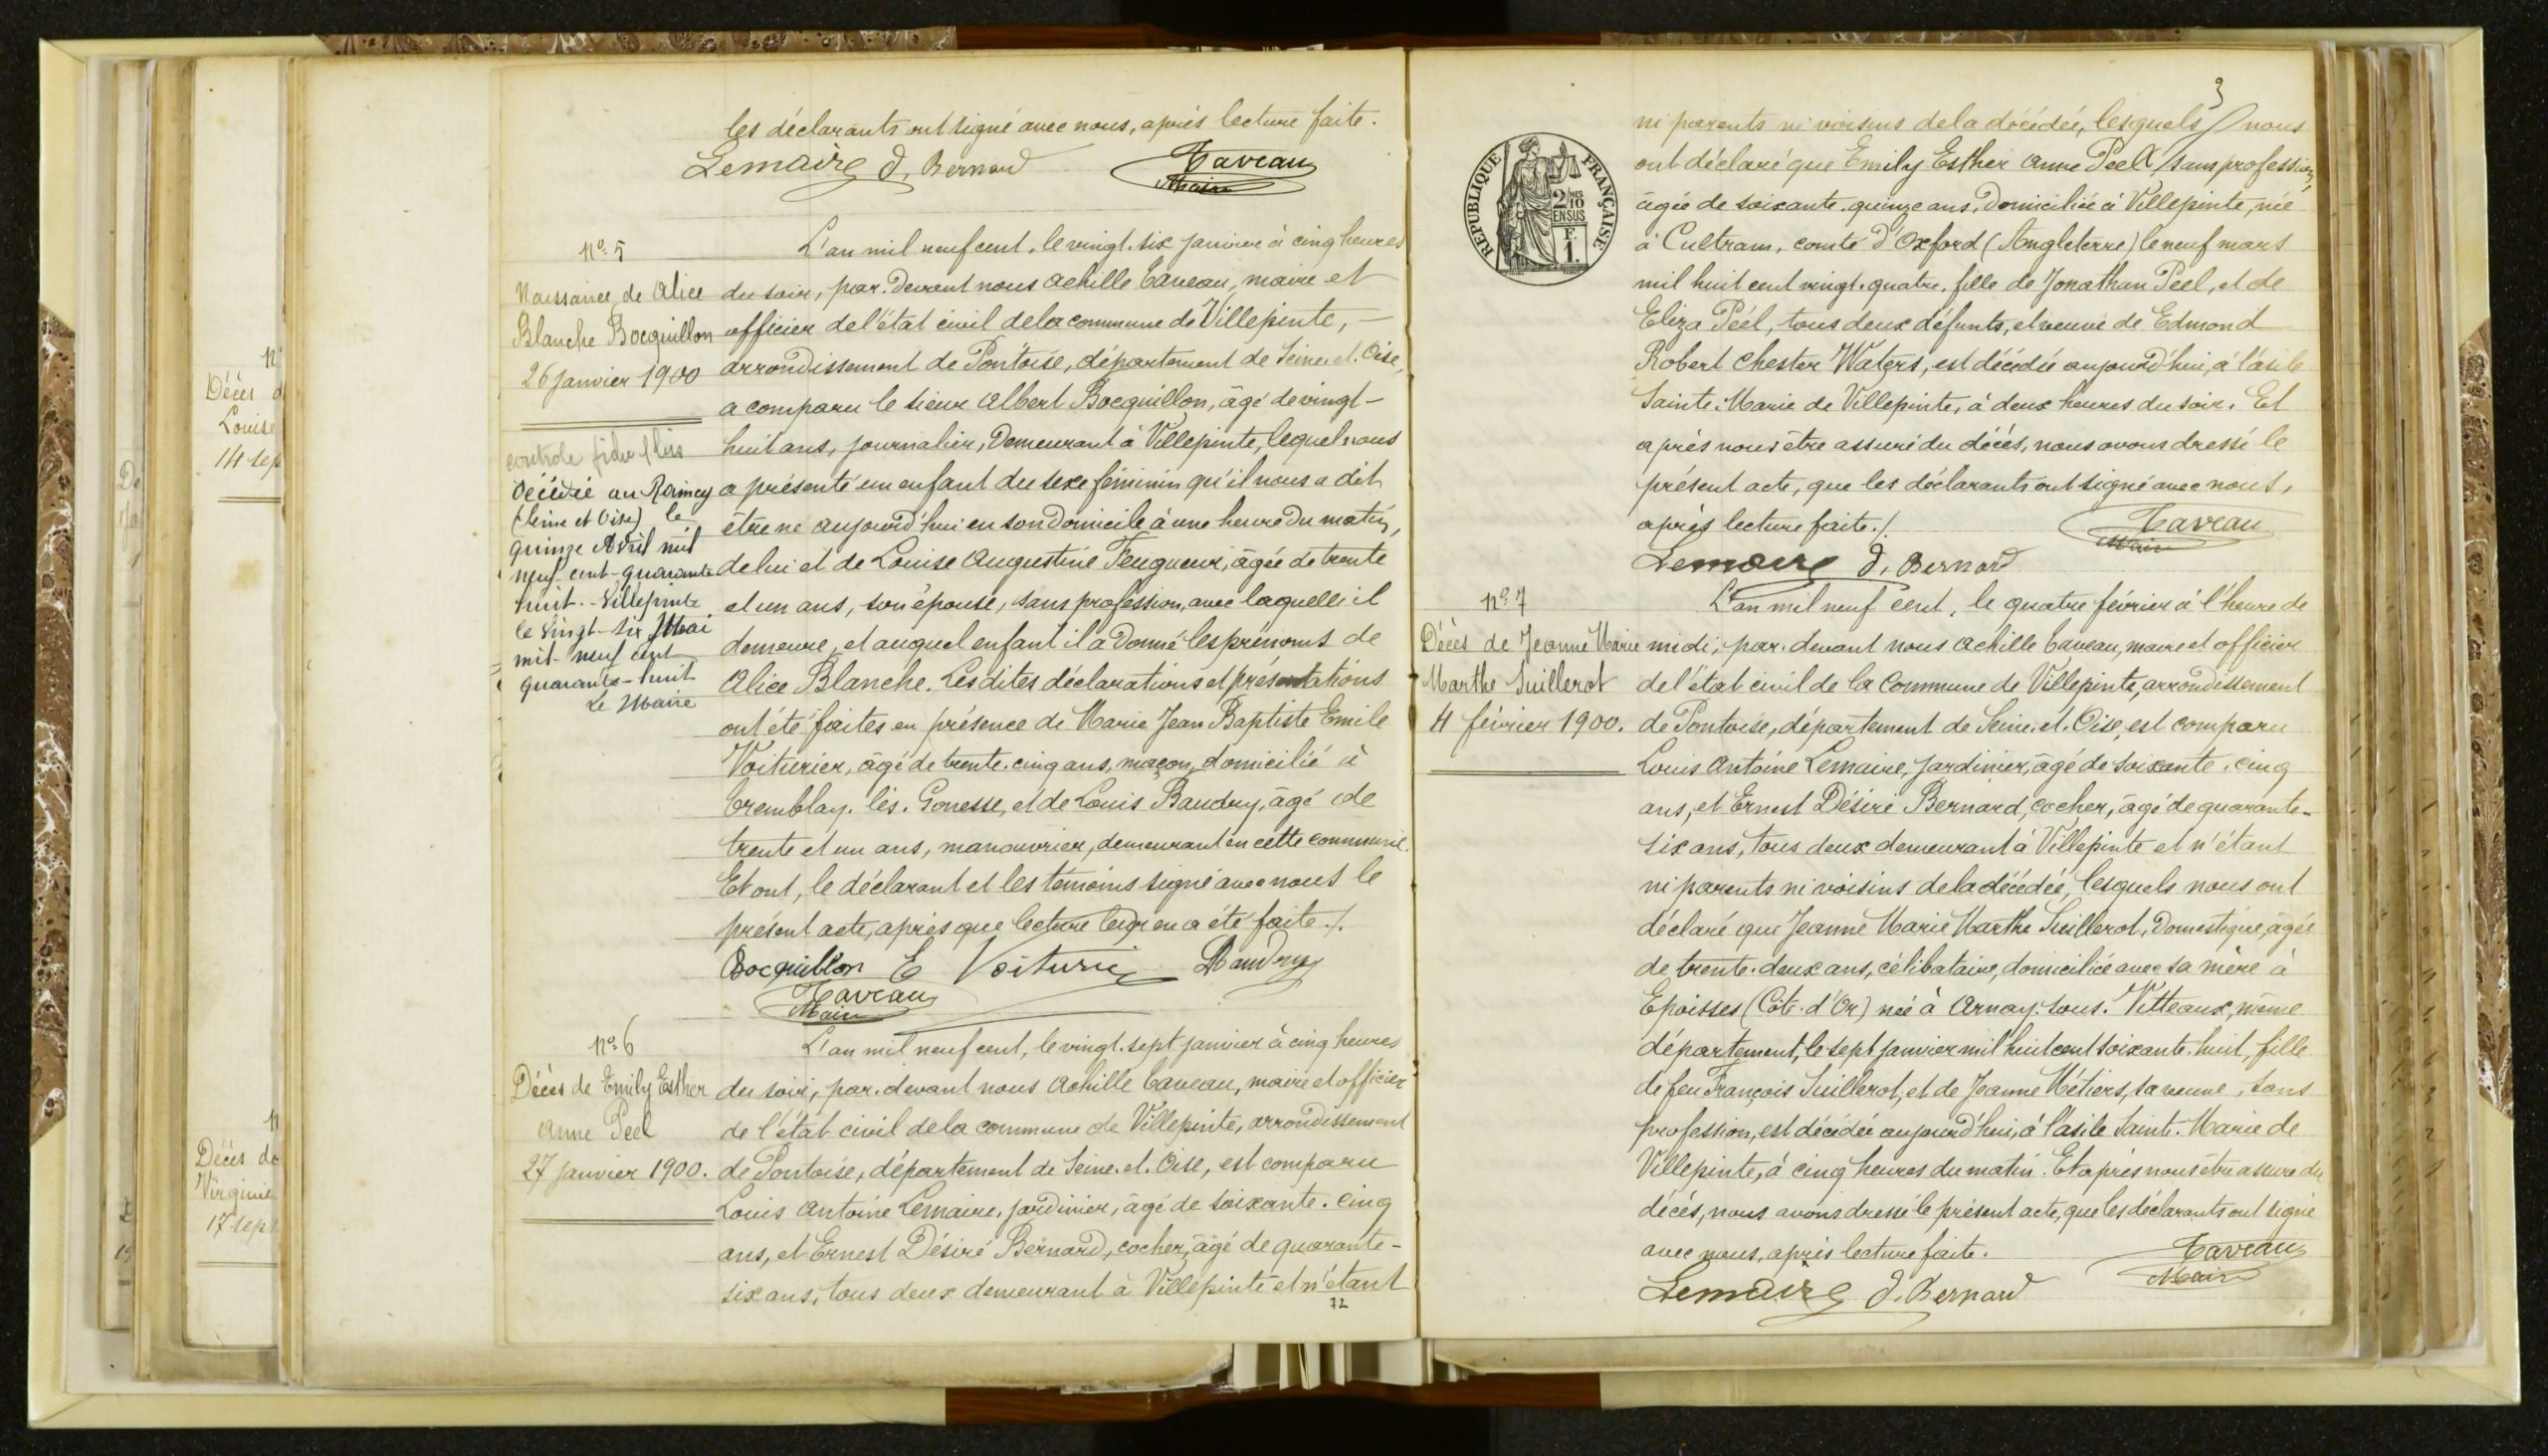 les déclarants ont signé avec nous, après lecture faite.
Lemaire D. Bernard Taveau
Maire
N° 5
Naissance de Alice
Blanche Bocquillon
26 janvier 1900
décédée au Raincy
(Seine et Oise) le
quinze Avril mil
neuf cent quarante
huit. - Villepinte
le vingt-six Mai
mil neuf cent
quarante-huit
Le Maire
L'an mil neuf cent, le vingt-six janvier à cinq heures
du soir, par-devant nous Achille Taveau, maire et
officier de l'état civil de la commune de Villepinte, —
arrondissement de Pontoise, département de Seine-et-Oise,
a comparu le sieur Albert Bocquillon, âgé de vingt-
huit ans, journalier, demeurant à Villepinte, lequel nous
a présenté un enfant du sexe féminin qu'il nous a dit
être né aujourd'hui en son domicile à une heure du matin,
de lui et de Louise Augustine Feugueur, âgée de trente
et un ans, son épouse, sans profession, avec laquelle il
demeure, et auquel enfant il a donné les prénoms de
Alice Blanche. Les dites déclarations et présentations
ont été faites en présence de Marie Jean Baptiste Emile
Voiturier, âgé de trente-cinq ans, maçon, domicilié à
Tremblay-lès-Gonesse, et de Louis Baudry, âgé de
trente et un ans, manouvrier, demeurant en cette commune.
Et ont, le déclarant et les témoins signé avec nous le
présent acte, après que lecture leur en a été faite ./.
Bocquillon E Voiturier Baudry
Taveau
Maire
N° 6
Décès de Emily Esther
Anne Peel
27 janvier 1900.
L'an mil neuf cent, le vingt-sept janvier à cinq heures
du soir, par-devant nous Achille Taveau, maire et officier
de l'état civil de la commune de Villepinte, arrondissement
de Pontoise, département de Seine-et-Oise, est comparu
Louis Antoine Lemaire, jardinier, âgé de soixante-cinq
ans, et Ernest Désiré Bernard, cocher, âgé de quarante-
six ans, tous deux demeurant à Villepinte et n'étant
72
3
ni parents ni voisins de la décédée, lesquels nous
ont déclaré que Emily Esther Anne Peel, sans profession,
âgée de soixante-quinze ans, domiciliée à Villepinte, née
à Cultram, comté d'Oxford (Angleterre) le neuf mars
mil huit cent vingt-quatre, fille de Jonathan Peel, et de
Eliza Péél, tous deux défunts, et veuve de Edmond
Robert Chester Waters, est décédée aujourd'hui, à l'asile
Sainte-Marie de Villepinte, à deux heures du soir. Et
après nous être assuré du décès, nous avons dressé le
présent acte, que les déclarants ont signé avec nous,
après lecture faite ./. Taveau
Maire
Lemaire D. Bernard
REPUBLIQUE FRANÇAISE
2/10
EN SUS
F.
1.
N° 7
Décès de Jeanne Marie
Marthe Suillerot
4 février 1900.
L'an mil neuf cent, le quatre février à l'heure de
midi, par-devant nous Achille Taveau, maire et officier
de l'état civil de la commune de Villepinte, arrondissement
de Pontoise, département de Seine-et-Oise, est comparu
Louis Antoine Lemaire, jardinier, âgé de soixante-cinq
ans, et Ernest Désiré Bernard, cocher, âgé de quarante-
six ans, tous deux demeurant à Villepinte et n'étant
ni parents ni voisins de la décédée, lesquels nous ont
déclaré que Jeanne Marie Marthe Suillerot, domestique, âgée
de trente-deux ans, célibataire, domiciliée avec sa mère à
Epoisses (Côte-d'Or) née à Arnay-sous-Vitteaux, même
département, le sept janvier mil huit cent soixante-huit, fille
de feu François Suillerot, et de Jeanne Métiers, sa veuve, sans
profession, est décédée aujourd'hui, à l'asile Sainte-Marie de
Villepinte, à cinq heures du matin. Et après nous être assuré du
décès, nous avons dressé le présent acte, que les déclarants ont signé
avec nous, après lecture faite. Taveau
Lemaire D. Bernard Maire
Décès d
Louise
14 sep
Décès de
Virginie
17 sept